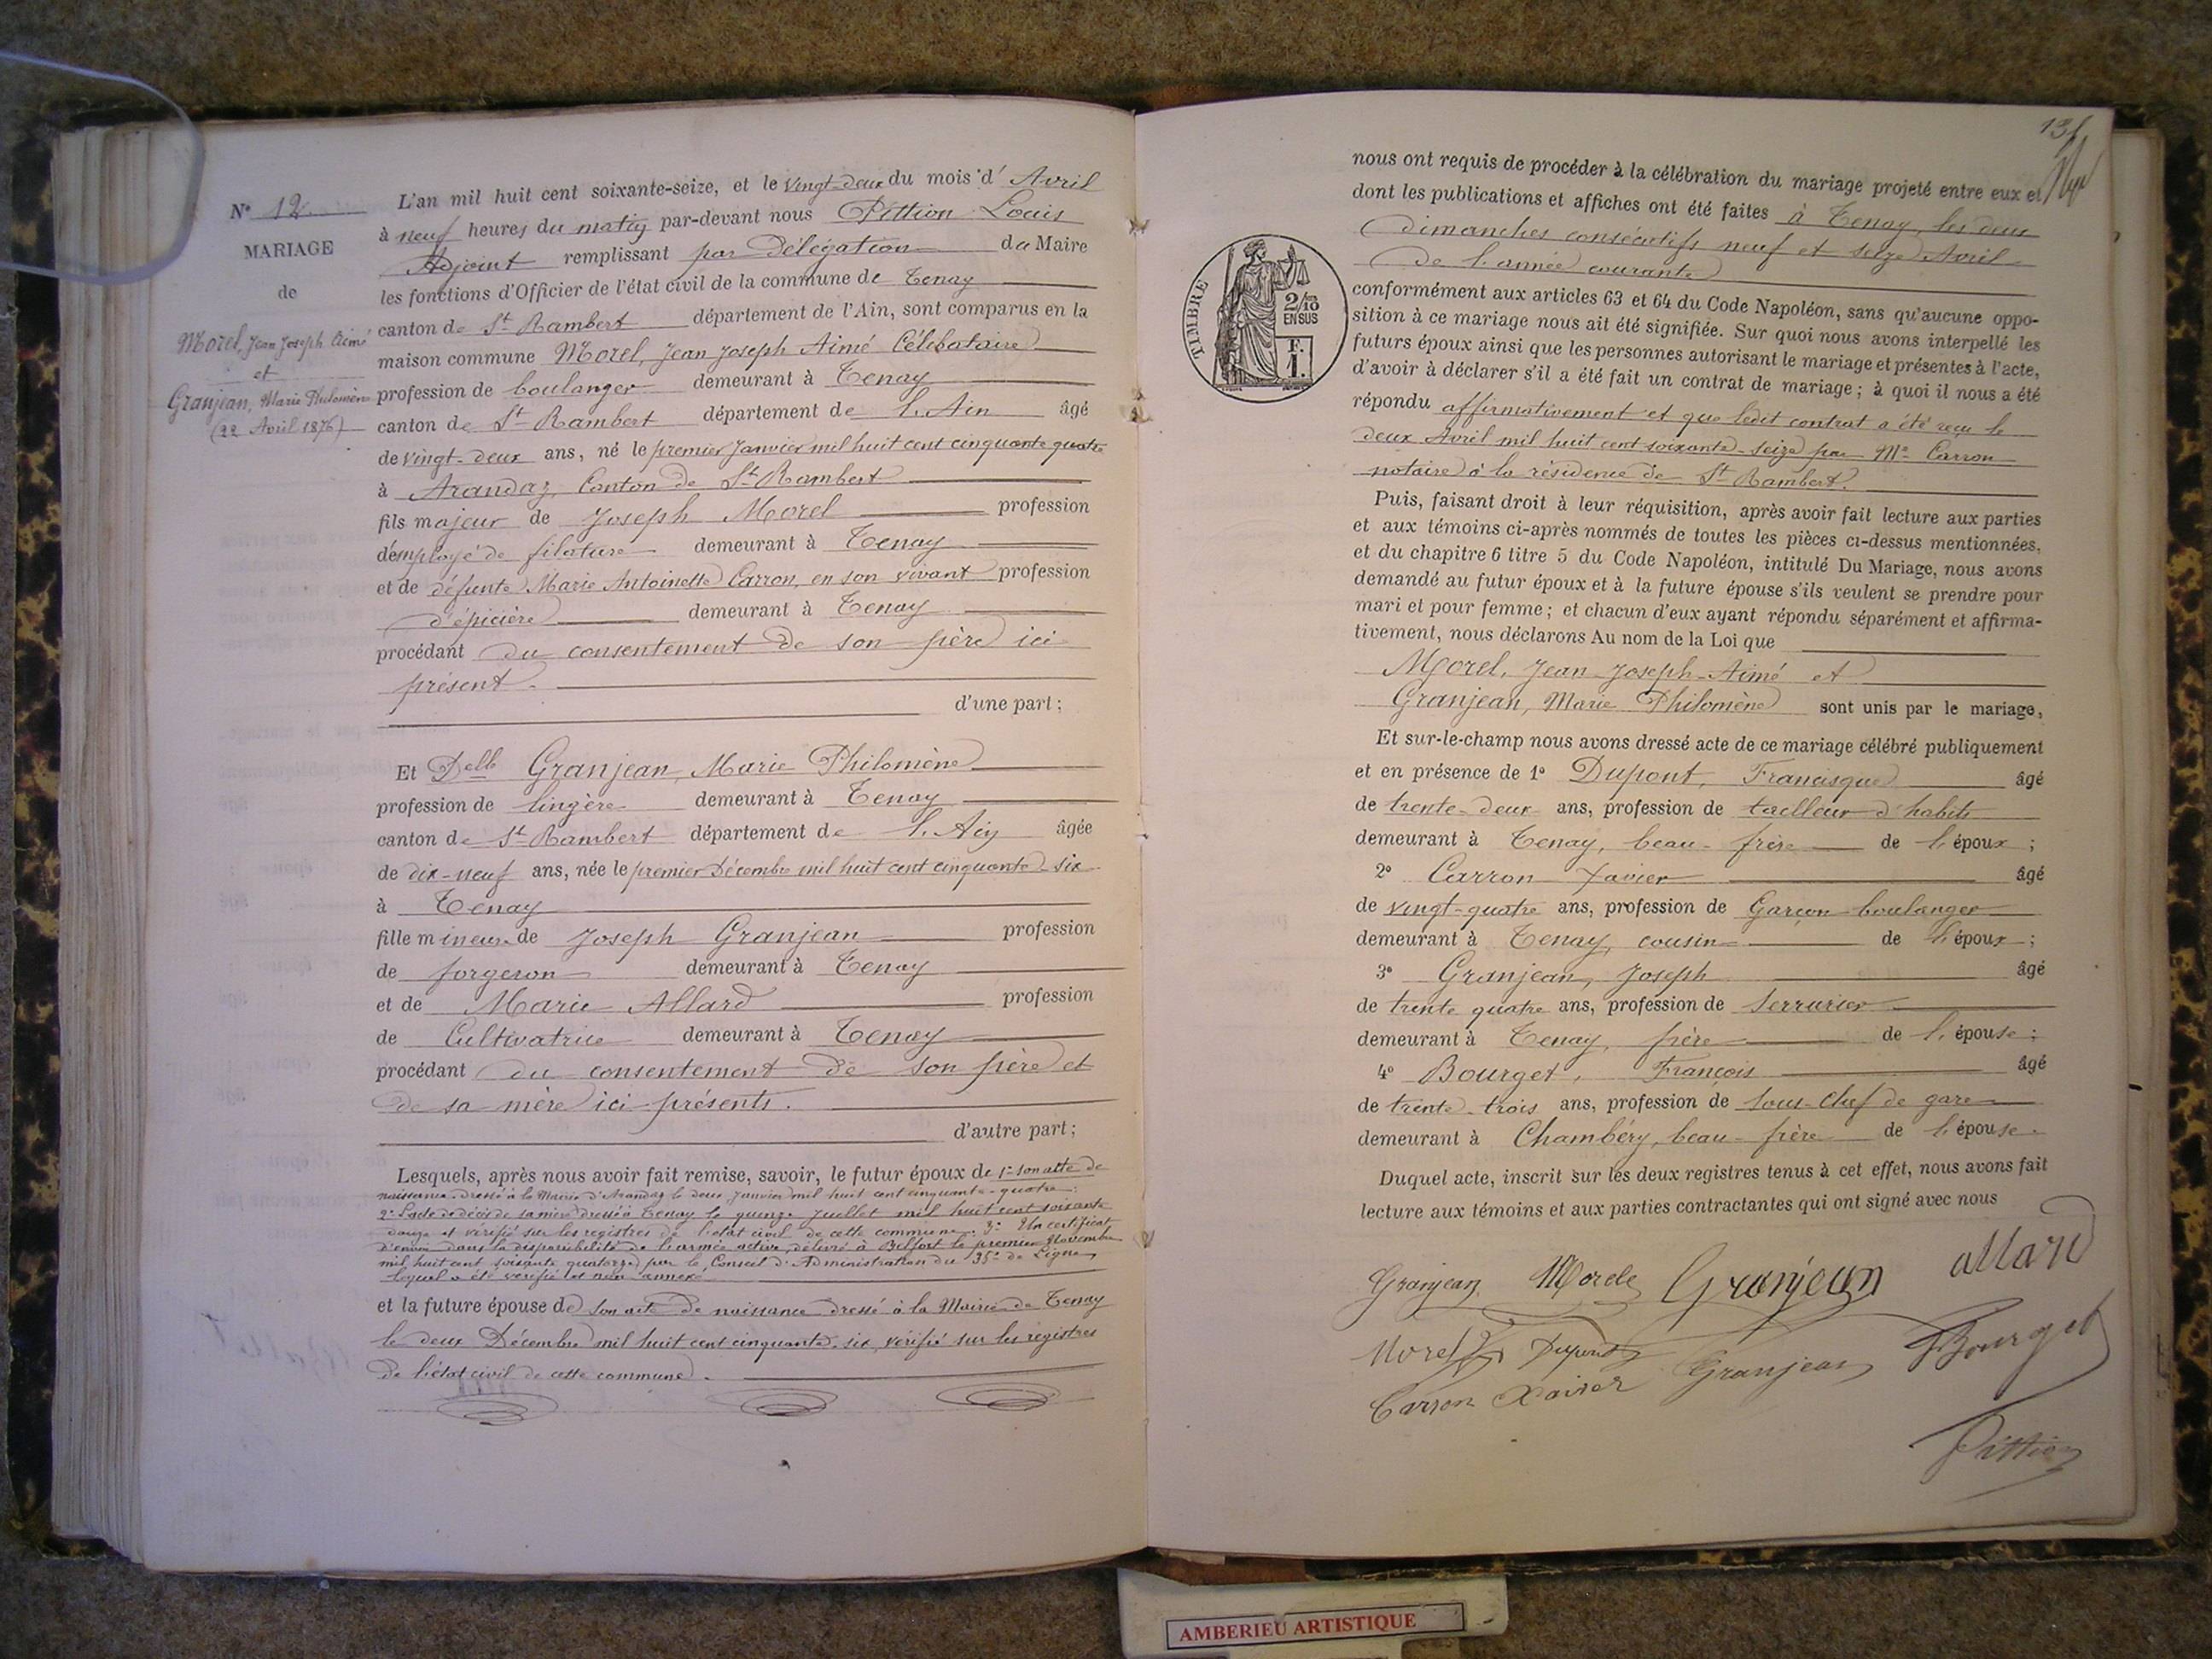 N° 12
MARIAGE
de
Morel, Jean Joseph Aimé
et
Granjean, Marie Philomène
(22 Avril 1876)
L'an mil huit cent soixante-seize, et le vingt-deux du mois d'Avril
à neuf heures du matin par-devant nous Pittion Louis
Adjoint remplissant par Délégation du Maire
les fonctions d'Officier de l'état civil de la commune de Tenay
canton de St Rambert département de l'Ain, sont comparus en la
maison commune Morel, Jean Joseph Aimé Célebataire
profession de boulanger demeurant à Tenay
canton de St Rambert département de l'Ain âgé
de vingt-deux ans, né le premier Janvier mil huit cent cinquante quatre
à Arandaz, Canton de St Rambert
fils majeur de Joseph Morel profession
d'employé de filature demeurant à Tenay
et de défunte Marie Antoinette Carron, en son vivant profession
d'épicière demeurant à Tenay
procédant du consentement de son père ici
présent.
d'une part;
Et Delle Granjean, Marie Philomène
profession de lingère demeurant à Tenay
canton de St Rambert département de l'Ain âgée
de dix-neuf ans, née le premier Décembre mil huit cent cinquante-six
à Tenay
fille mineure de Joseph Granjean profession
de forgeron demeurant à Tenay
et de Marie Allard profession
de Cultivatrice demeurant à Tenay
procédant du consentement de son père et
de sa mère ici présents.
d'autre part;
Lesquels, après nous avoir fait remise, savoir, le futur époux de 1° son acte de
naissance dressé à la Mairie d'Arandaz le deux Janvier mil huit cent cinquante-quatre;
2° l'acte de décès de sa mère dressé à Tenay le quinze Juillet mil huit cent soixante
douze et vérifié sur les registres de l'état civil de cette commune. 3° Un certificat
d'envoi dans la disponibilité de l'armée active, délivré à Belfort le premier Novembre
mil huit cent soixante quatorze par le Conseil d'Administration du 35e de Ligne,
lequel a été vérifié et non annexé
et la future épouse de son acte de naissance dressé à la Mairie de Tenay
le deux Décembre mil huit cent cinquante-six, vérifié sur les registres
de l'état civil de cette commune.
131
nous ont requis de procéder à la célébration du mariage projeté entre eux et
dont les publications et affiches ont été faites à Tenay, les deux
dimanches consécutifs neuf et seize Avril
de l'année courante
conformément aux articles 63 et 64 du Code Napoléon, sans qu'aucune oppo-
sition à ce mariage nous ait été signifiée. Sur quoi nous avons interpellé les
futurs époux ainsi que les personnes autorisant le mariage et présentes à l'acte,
d'avoir à déclarer s'il a été fait un contrat de mariage; à quoi il nous a été
répondu affirmativement et que ledit contrat a été reçu le
deux Avril mil huit cent soixante-seize par Me Carron
notaire à la résidence de St Rambert.
TIMBRE
2/10
EN SUS
F.
1.
Puis, faisant droit à leur réquisition, après avoir fait lecture aux parties
et aux témoins ci-après nommés de toutes les pièces ci-dessus mentionnées,
et du chapitre 6 titre 5 du Code Napoléon, intitulé Du Mariage, nous avons
demandé au futur époux et à la future épouse s'ils veulent se prendre pour
mari et pour femme; et chacun d'eux ayant répondu séparément et affirma-
tivement, nous déclarons Au nom de la Loi que
Morel, Jean-Joseph-Aimé et
Granjean, Marie Philomène sont unis par le mariage,
Et sur-le-champ nous avons dressé acte de ce mariage célébré publiquement
et en présence de 1° Dupont, Francisque âgé
de trente-deux ans, profession de tailleur d'habits
demeurant à Tenay, beau-frère de l'époux;
2° Carron Xavier âgé
de vingt-quatre ans, profession de Garçon boulanger
demeurant à Tenay, cousin de l'époux;
3° Granjean, Joseph âgé
de trente quatre ans, profession de serrurier
demeurant à Tenay, frère de l'épouse;
4° Bourget, François âgé
de trente-trois ans, profession de sous-chef de gare
demeurant à Chambéry, beau-frère de l'épouse.
Duquel acte, inscrit sur les deux registres tenus à cet effet, nous avons fait
lecture aux témoins et aux parties contractantes qui ont signé avec nous
Granjean Morel Granjean allard
Morel Dupont Granjean Bourget
Carron Xavier
Pittion
AMBERIEU ARTISTIQUE